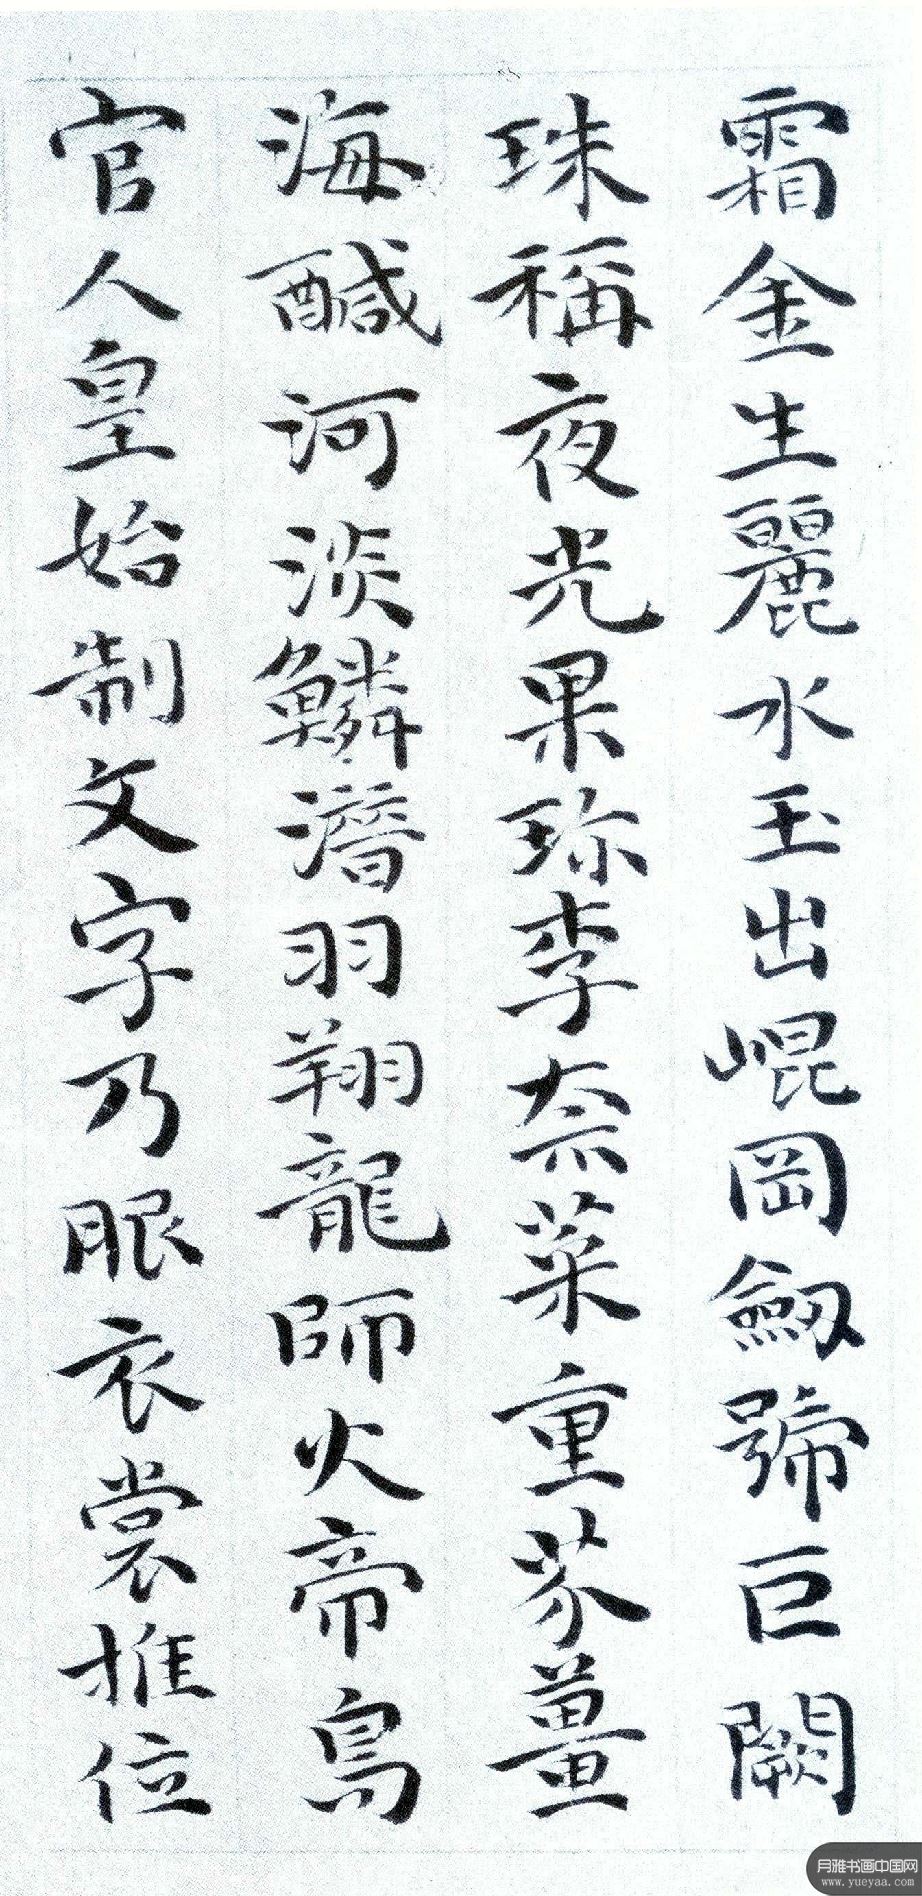 霜金生麗水玉出崐岡劒號巨闕
珠稱夜光果珎李柰菜重芥薑
海醎河淡鱗潛羽翔龍師火帝鳥
官人皇始制文字乃服衣裳推位
月雅书画中国网
www.yueyaa.com